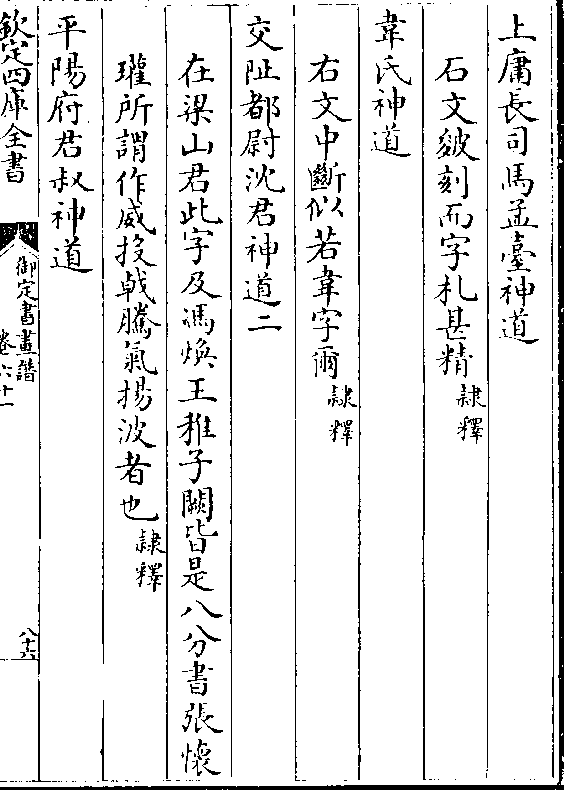 上庸長司馬孟臺神道
石文皴刻而字札甚精隸釋
韋氏神道
右文中斷似若韋字爾隸釋
交阯都尉沈君神道二
在梁山君此字及馮煥王稚子闕皆是八分書張懐
瓘所謂作威投戟騰氣揚波者也隸釋
平陽府君叔神道
欽定四庫全書
御定書畫譜
卷六十一
八十六